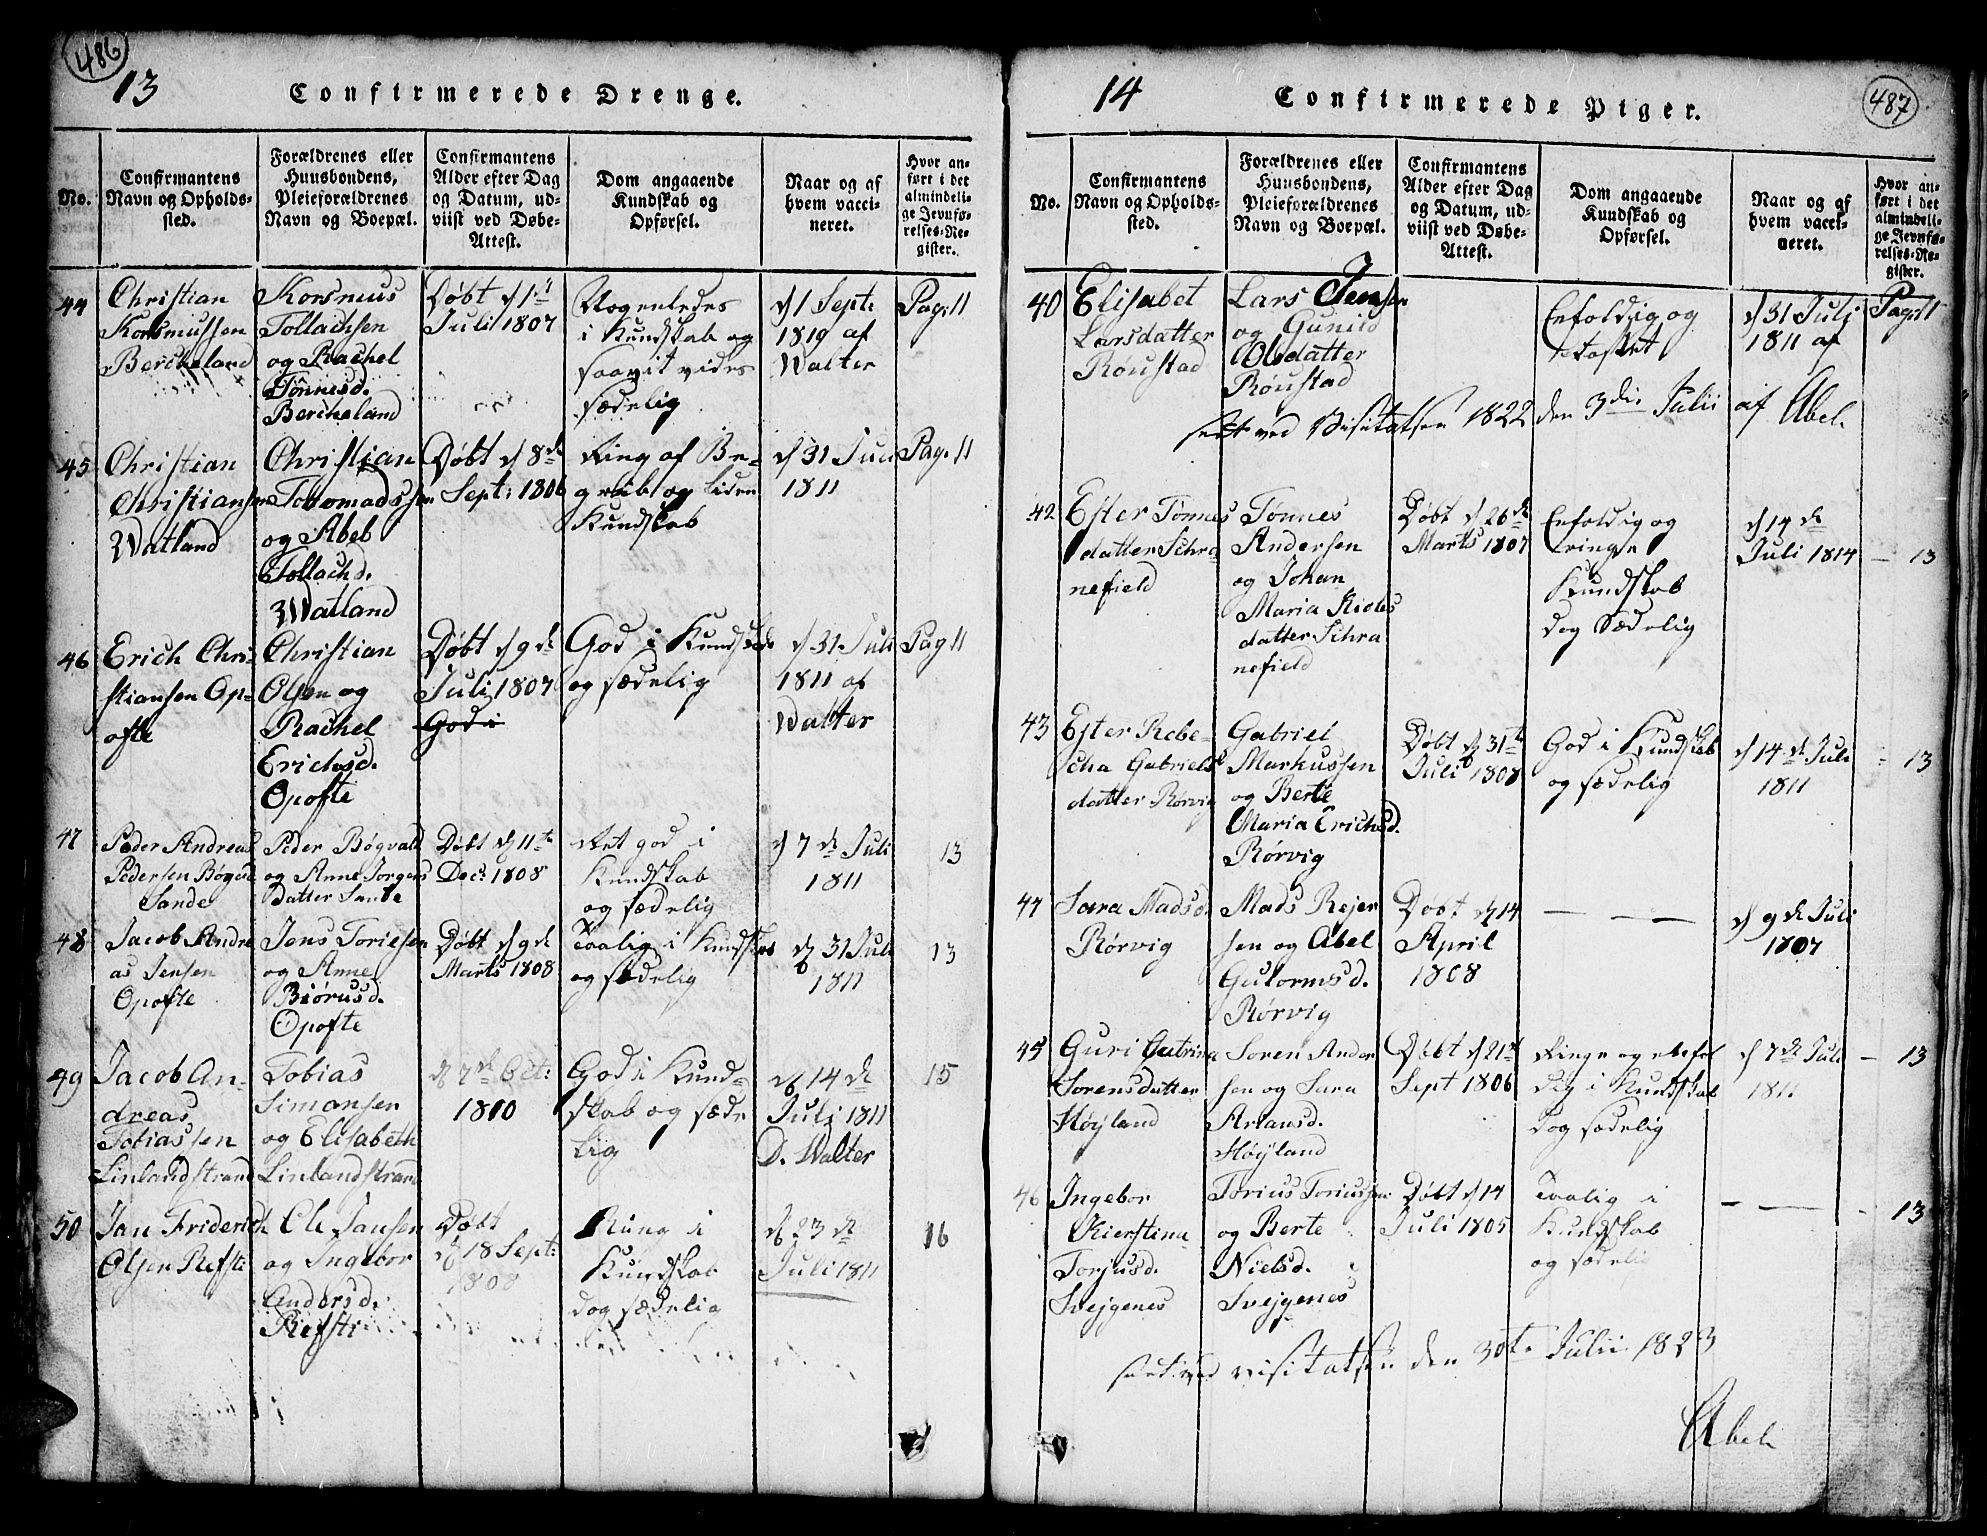 486
13
Confirmerede Drenge.
No.
Confirmantens
Navn og Opholds-
sted.
Forældrenes eller
Huusbondens,
Pleieforældrenes
Navn og Boepæl.
Confirmantens
Alder efter Dag
og Datum, ud-
viist ved Døbe-
Attest.
Dom angaaende
Kundskab og
Opførsel.
Naar og af
hvem vacci-
neret.
Hvor an-
ført i det
almindeli-
ge Jevnfø-
relses-Re-
gister.
44
Christian
Korsmussen
Bercheland
Korsmus
Tollachsen
og Rachel
Tønnesd.
Bercheland
Døbt d 1
Juli 1807
Nogenledes
i Kundskab og
saavit vides
sædelig
d 1 Sept:
1819 af
Walter
Pag: 11
45
Christian
Christiansen
Watland
Christian
Tobomadssen
og Abel
Tollachd.
Watland
Døbt d 8de
Sept: 1806
Ring af Be-
greb og liden
Kundskab
d 31 Juli
1811
Pag. 11
46
Erich Chri-
stiansen Op-
ofte
Christian
Olsen og
Rachel
Erichsd.
Opofte
Døbt d 9de
Juli 1807
God i
God i Kundskab
og sædelig
d 31. Juli
1811 af
Walter
Pag 11
47
Peder Andreas
Pedersen Bøgvd
Sande
Peder Bøgvald
og Anne Jørgens
Datter Sande
Døbt d 11te
Dec: 1808
Ret god i
Kundskab
og sædelig
d 7de Juli
1811
13
48
Jacob Andre
as Jensen
Opofte
Jens Toriesen
og Anne
Biørnsd.
Opofte
Døbt d 9de
Marts 1808
Taalig i Kundskab
og sædelig
d 31 Juli
1811
13
49
Jacob An-
dreas
Tobiassen
Linlandstrand
Tobias
Simonsen
og Elisabeth
Linlandstrand
d 7de Oct:
1810
God i Kund-
skab og sæde
lig
d 14de
Juli 1811
D. Walter
15
50
Jan Friderich
Olsen Refsti
Ole Jansen
og Ingebor
Andersd.
Refsti
Døbt
d 18 Sept:
1808
Ring i
Kundskab
dog sædelig
d 23de
Juli 1811
16
14
Confirmerede Piger.
487
No.
Confirmantens
Navn og Opholds-
sted.
Forældrenes eller
Huusbondens,
Pleieforældrenes
Navn og Boepæl.
Confirmantens
Alder efter Dag
og Datum, ud-
viist ved Døbe-
Attest.
Dom angaaende
Kundskab og
Opførsel.
Naar og af
hvem vacci-
neret.
Hvor an-
ført i det
almindeli-
ge Jevnfø-
relses-Re-
gister.
40
Elisabet
Larsdatter
Røustad
Lars Jensen
og Gunild
Olsdatter
Røustad
Enfoldig og
d 31 Juli
1811 af
Pag: 11
seet ved Visitatsen 1822 den 3die Julii af Abel.
42
Ester Tønnes
datter Schra
nefield
Tønnes
Andersen
og Johan
Maria Niels
datter Schra
nefield
Døbt d 26de
Marts 1807
Enfoldig og
ringe
Kundskab
dog Sædelig
d 14de
Juli 1814
- 13
43
Ester Rebe-
cha Gabriels
datter Rørvig
Gabriel
Markussen
og Berte
Maria Erichsd.
Rørvig
Døbt d 31te
Juli 1808
God i Kundskab
og sædelig
d 14de Juli
1811
- 13
44
Sara Madsd.
Rørvig
Mads Rejer
sen og Abel
Gutormsd.
Rørvig
Døbt d 14
April
1808
— —
d 9de Juli
1807
45
Guri Catrina
Sørensdatter
Høyland
Søren Ander
sen og Sara
Arlansd.
Høyland
Døbt d 21de
Sept 1806
Ringe og enfol
dig i Kundskab
dog sædelig
d 7de Juli
1811
- 13
46
Ingebor
Kierstina
Torjusd.
Svejgenes
Torius Toriussen
og Berte
Nielsd.
Svejgenes
Døbt d 14
Juli 1805
Taalig i
Kundskab
og sædelig
— —
- 13
seet ved Visitatsen den 30te Julii 1823
Abel